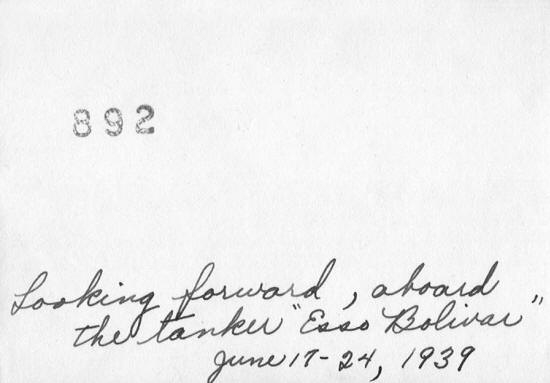 892
Looking forward, aboard
the tanker "Esso Bolivar"
June 17-24, 1939